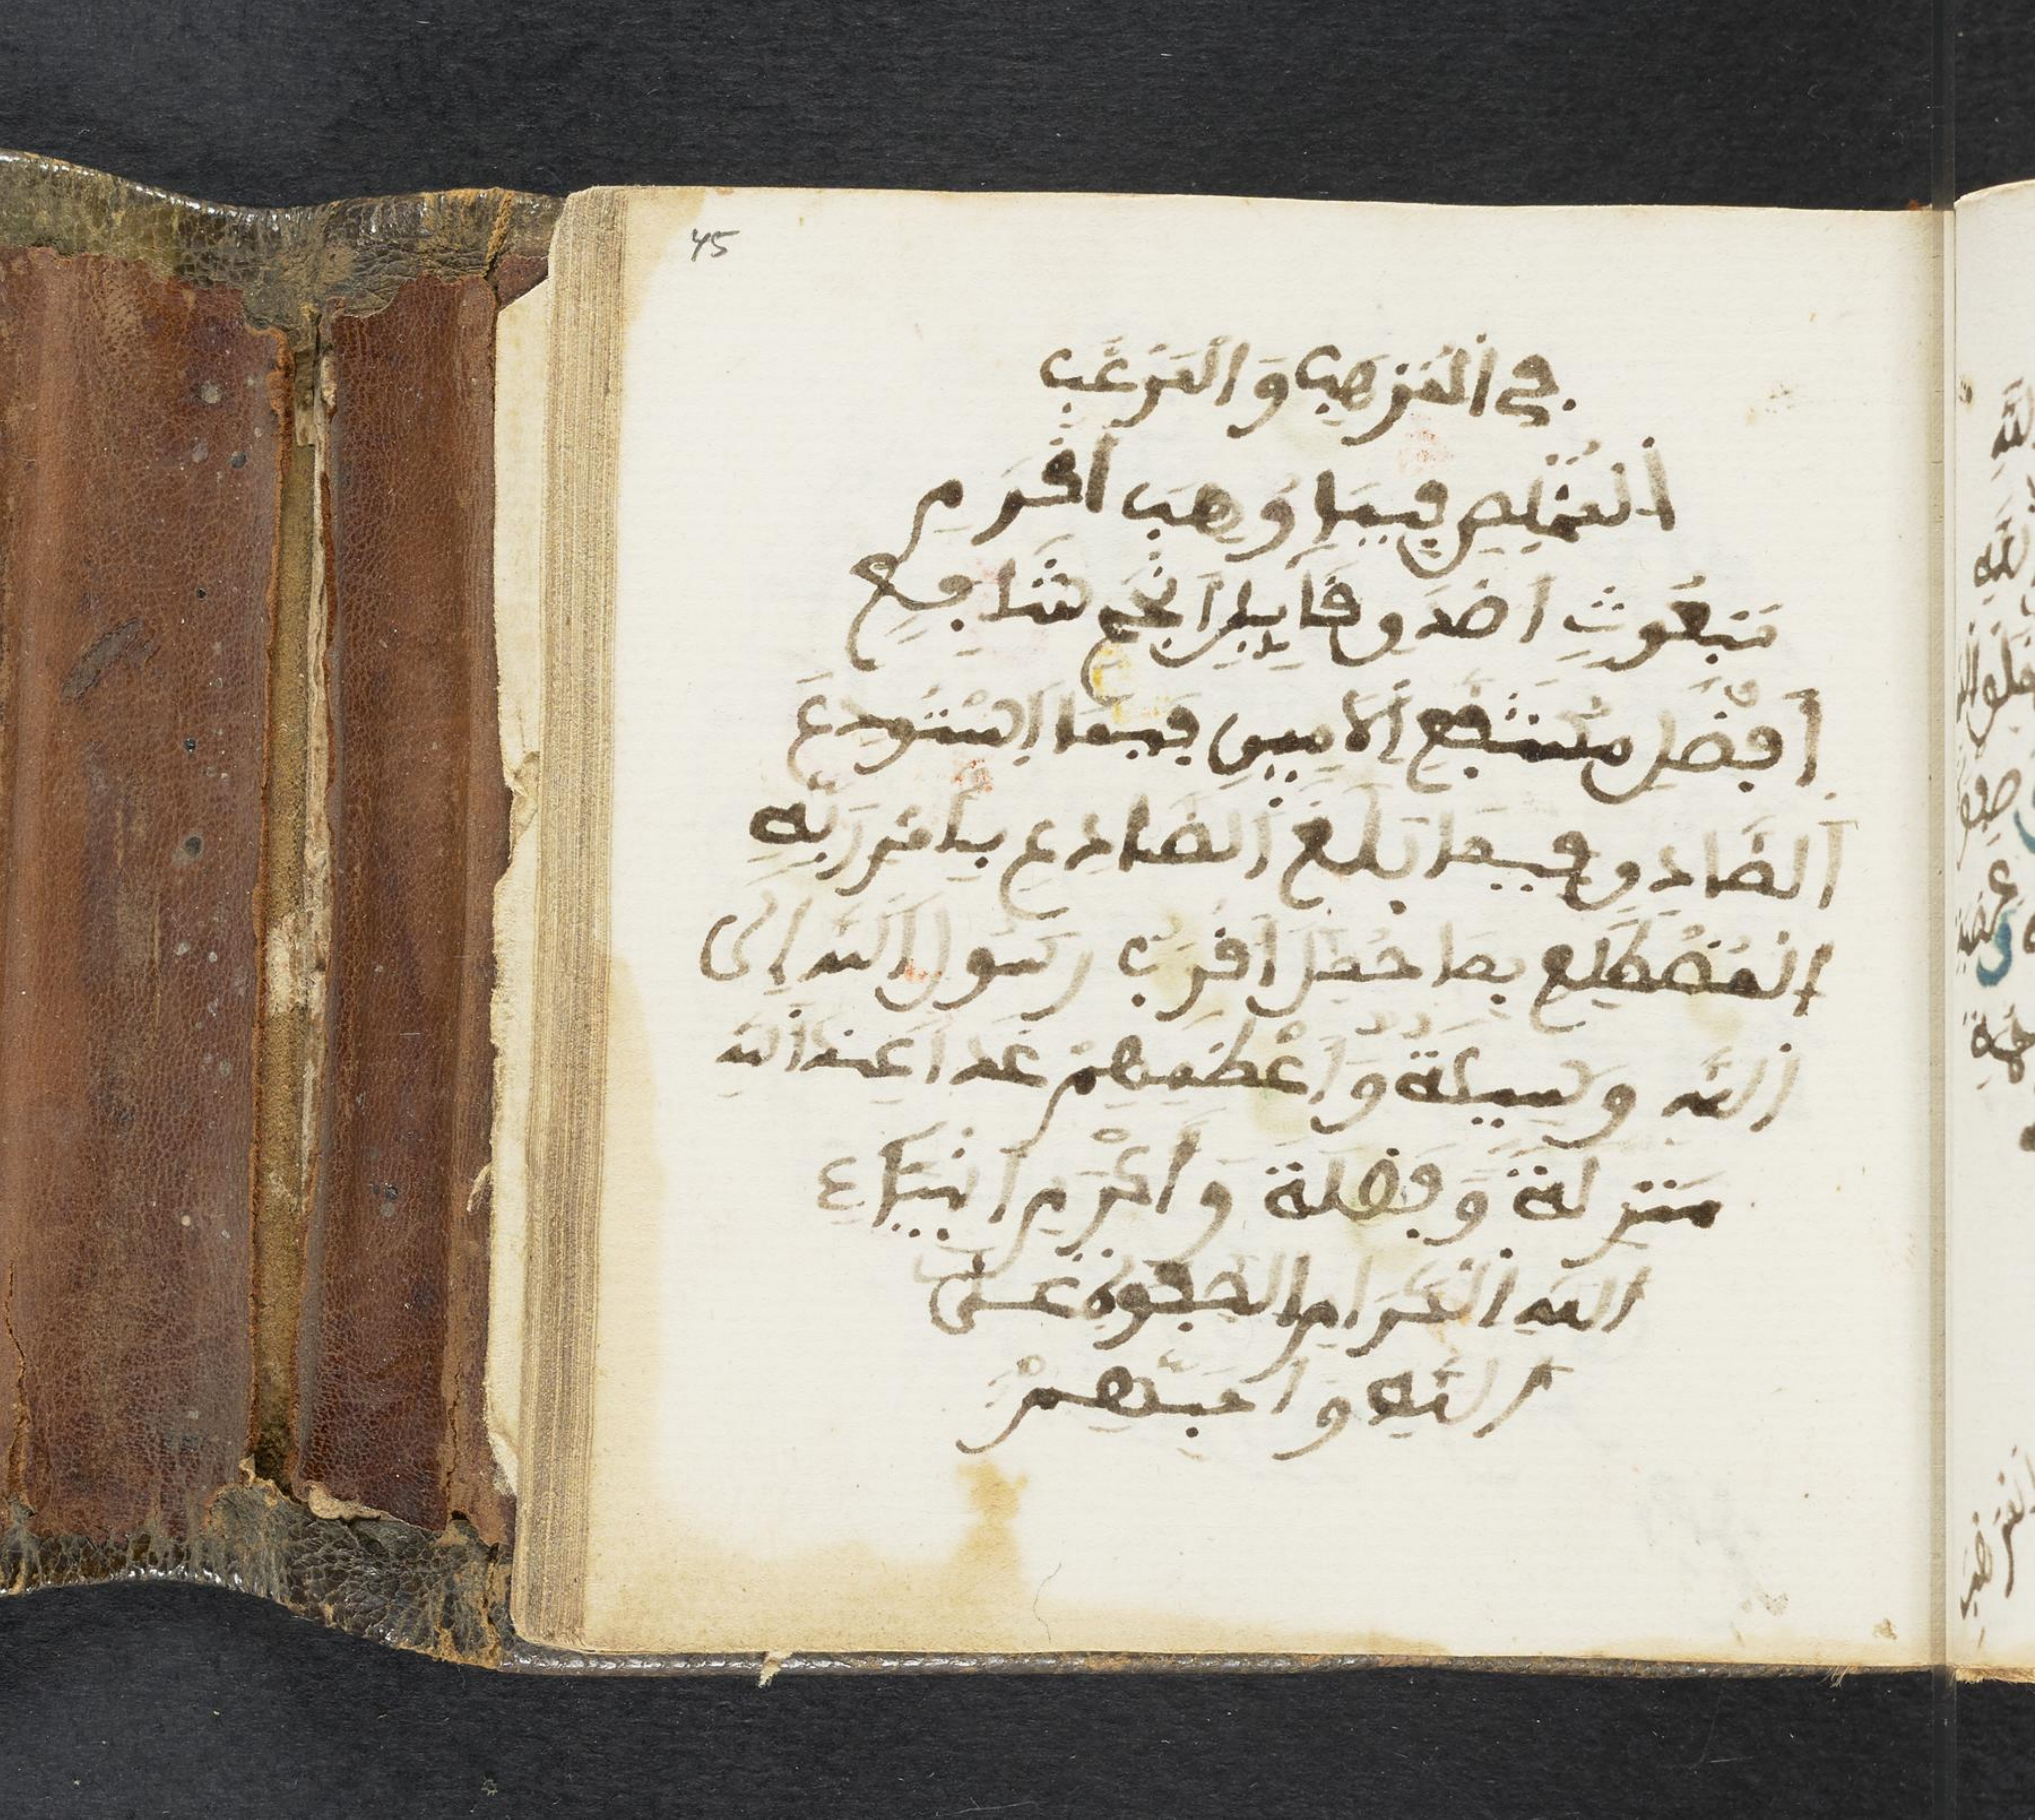 45
في المرهب والمرغب
المخلص فيما وهب اكرم
مبعوث اصدق قايل انجح شافع
افضل مشفع الامين فيما استودع
الصادق فيما بلغ الصادع بامر ربه
المضطلع بما حمل اقرب رسول الله الى
الله وسيلة واعظمهم غدا عند الله
منزلة وفضلة واكرم انبياء
الله الكرام الصفوة على
الله واحبهم